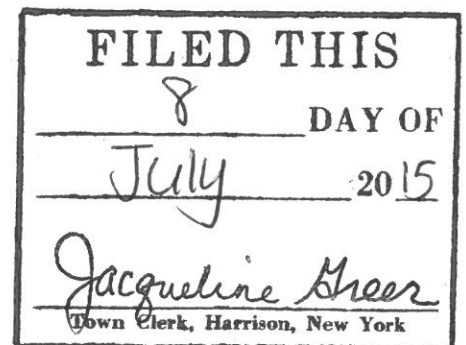 FILED THIS
8 DAY OF
July 2015
Jacqueline Greer
Town Clerk, Harrison, New York